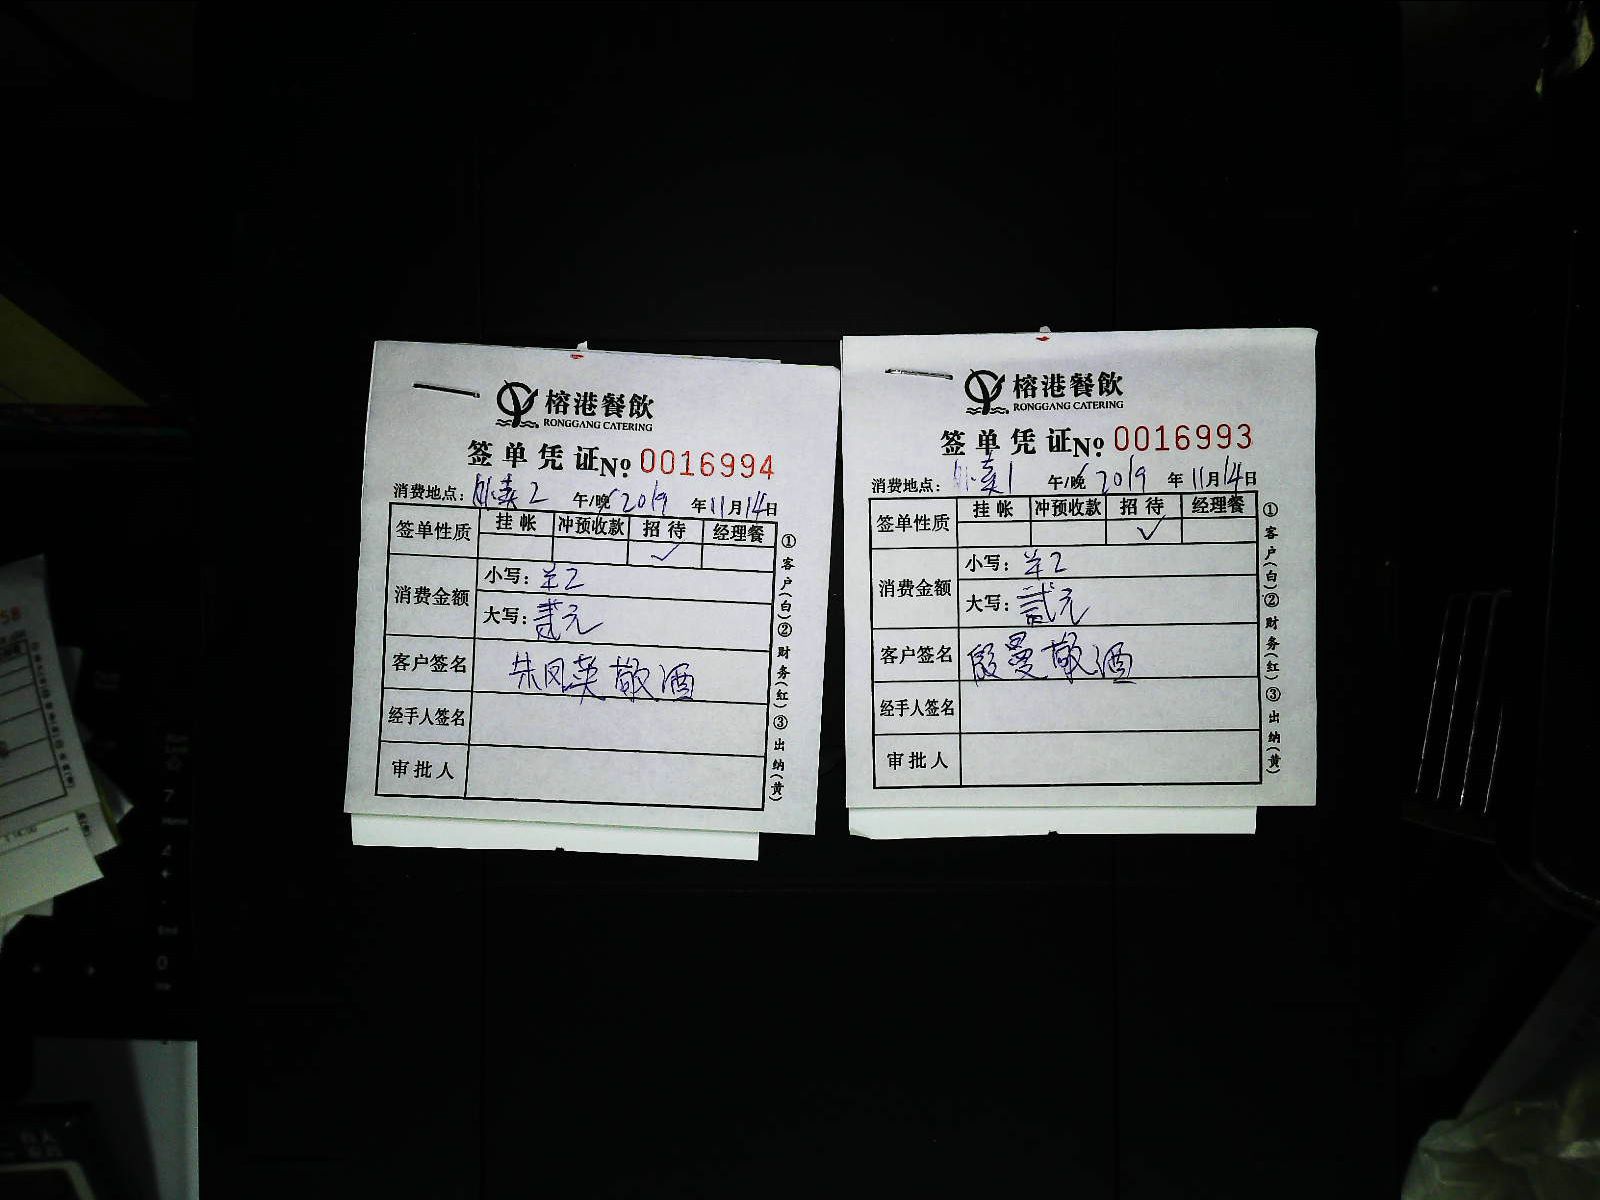 榕港餐飲
RONGGANG CATERING
签单凭证 No. 0016994
消费地点：外卖2 午/晚 2019年11月14日
签单性质 挂帐 冲预收款 招待 经理餐
✓
消费金额 小写：羊2
大写：贰元
客户签名 朱凤英敬酒
经手人签名
审批人
①客户(白)②财务(红)③出纳(黄)
榕港餐飲
RONGGANG CATERING
签单凭证 No. 0016993
消费地点：外卖1 午/晚 2019年11月14日
签单性质 挂帐 冲预收款 招待 经理餐
✓
消费金额 小写：羊2
大写：贰元
客户签名 殷曼敬酒
经手人签名
审批人
①客户(白)②财务(红)③出纳(黄)
58
7
4
End
0